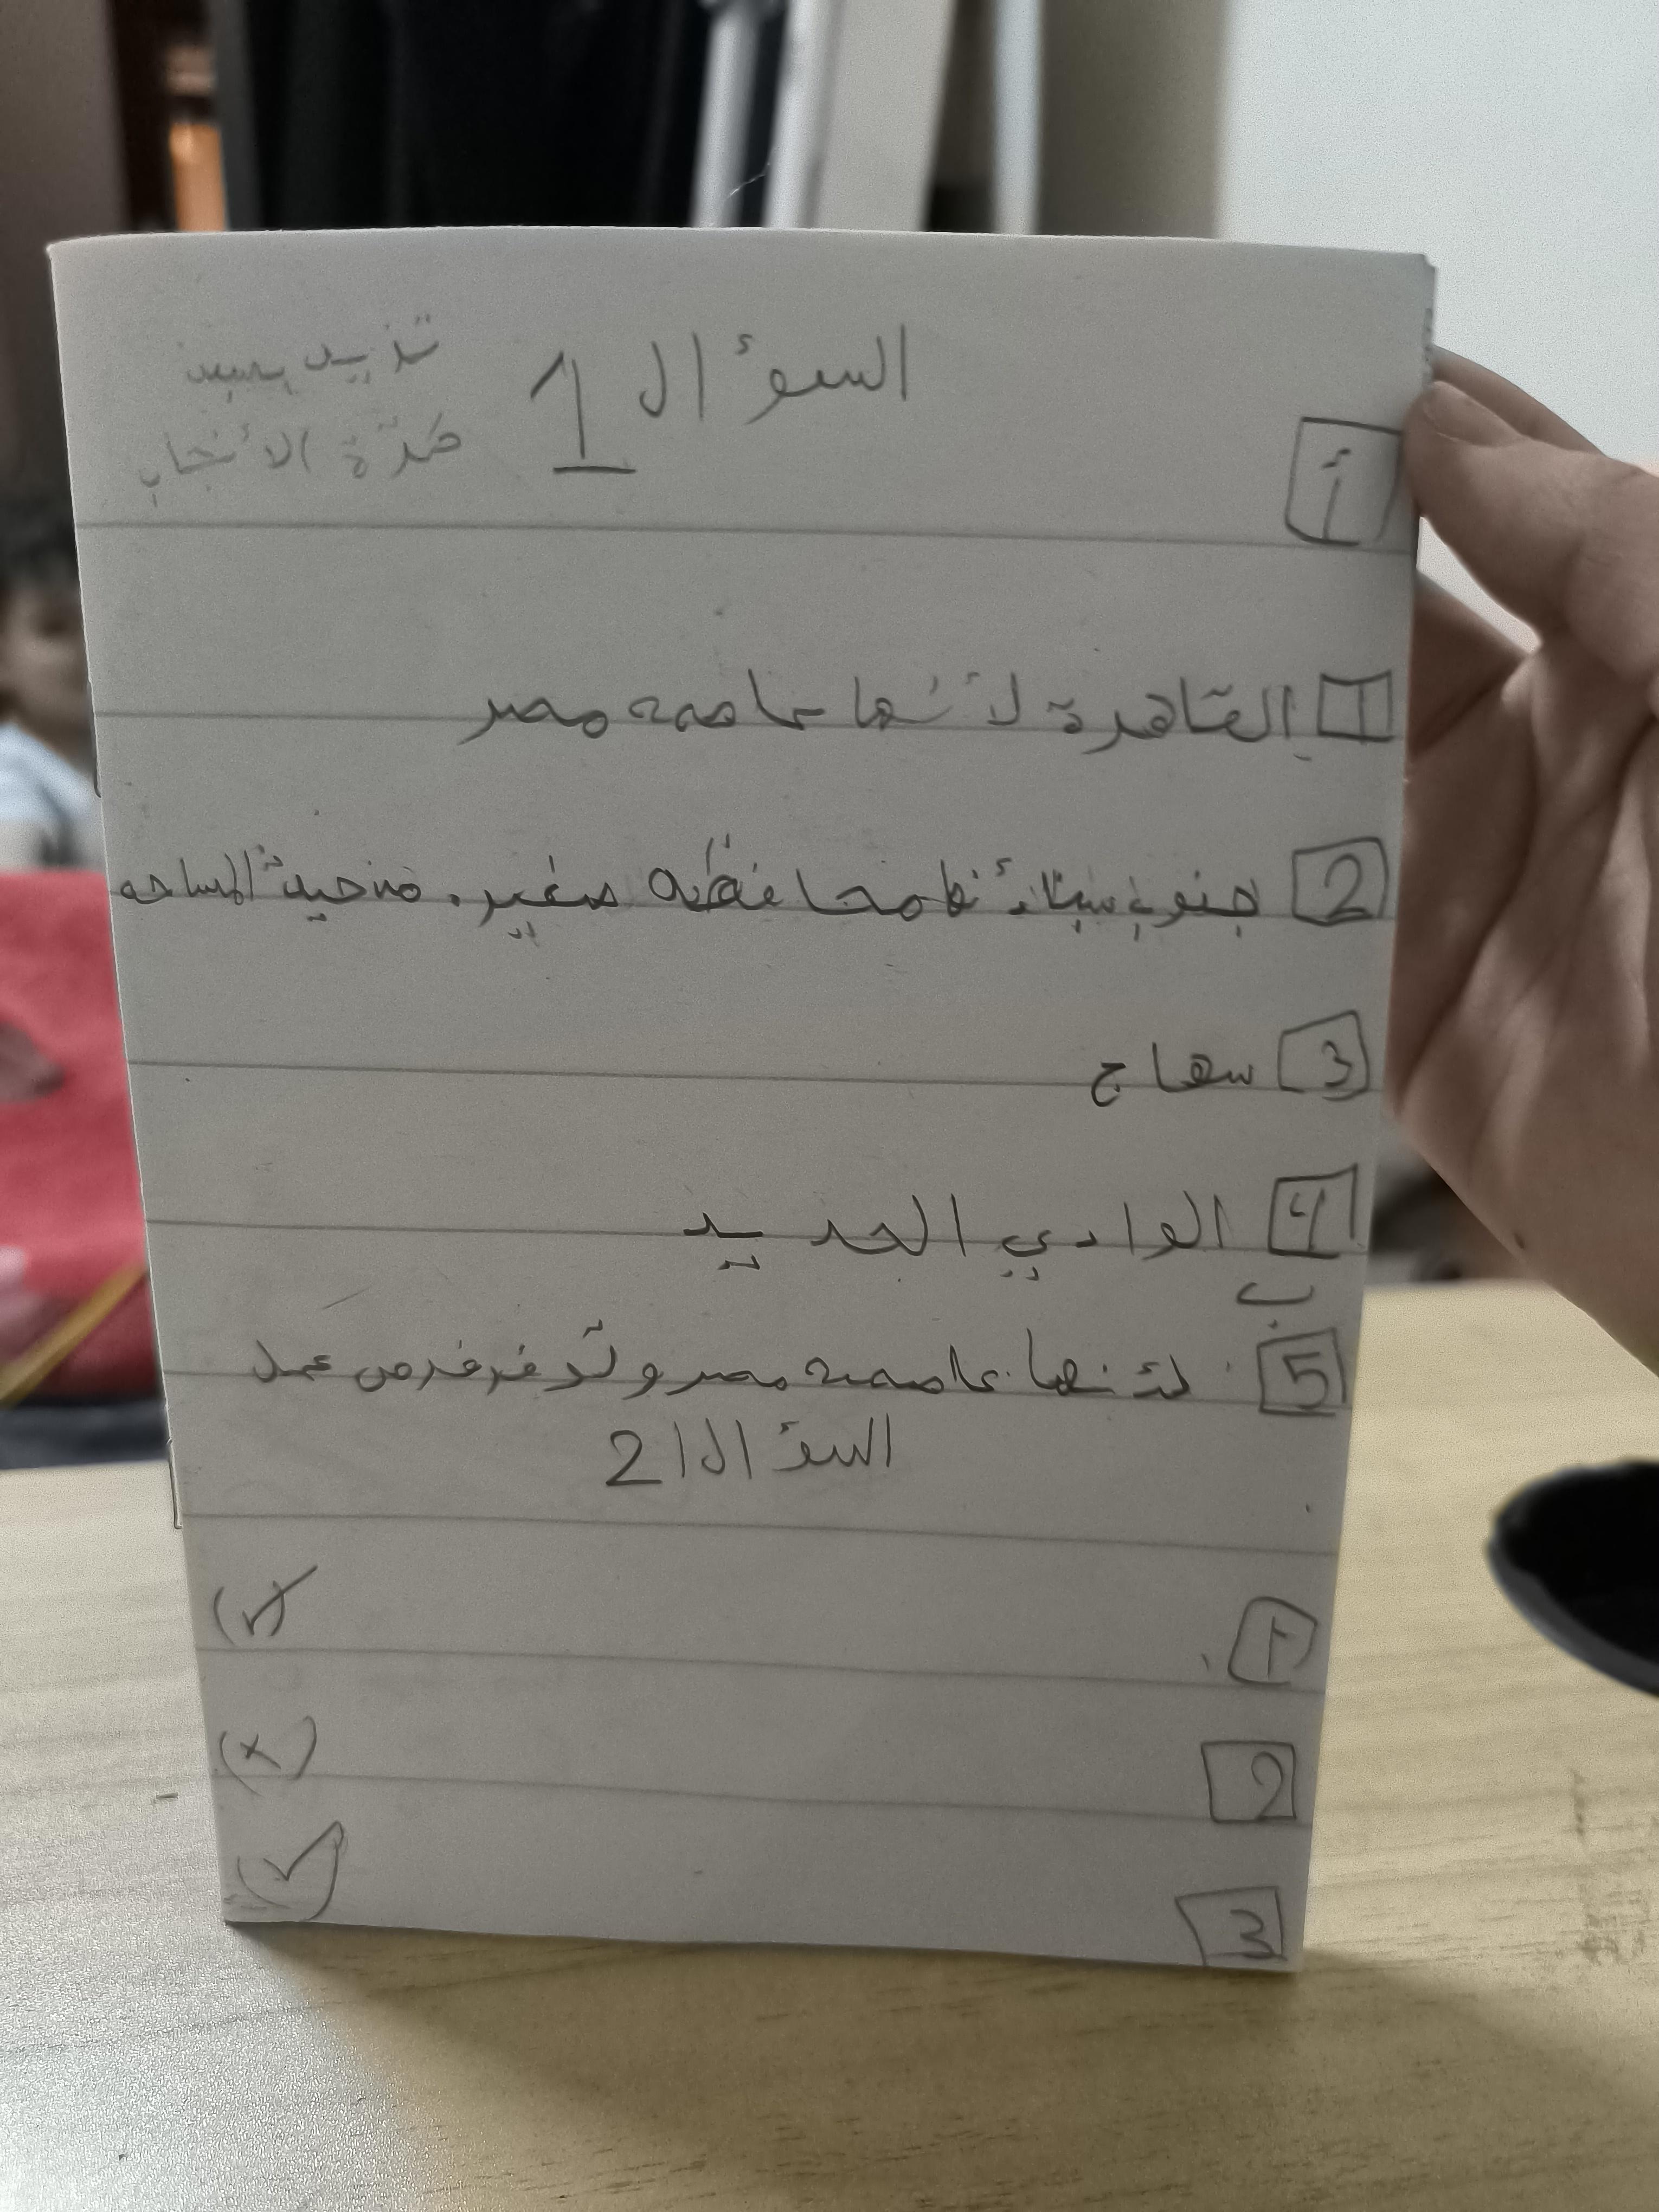 السؤال 1
تزيد بسبب
كثرة الأنجاب
أ
1 القاهرة لأنها عاصمه مصر
2 جنوب سيناء محافظه صغير. من حية المساحه
3 سهاج
4 الوادي الجديد
ب
5 لئنها عاصمه مصر و توفر فرص عمل
السؤال 2
1 (✓)
2 (x)
3 (✓)